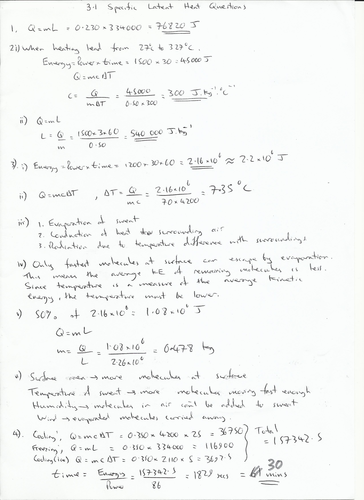 3.1 Specific Latent Heat Questions
1. Q=mL = 0.230 × 334000 = 76820 J
2 i) When heating lead from 27°C to 327°C.
Energy = Power × time = 1500 × 30 = 45000 J
Q = mcΔT
c = Q/mΔT = 45000/0.50×300 = 300 J.kg⁻¹.°C⁻¹
ii) Q = mL
L = Q/m = 1500×3×60/0.50 = 540 000 J.kg⁻¹
3. i) Energy = Power × time = 1200 × 30 × 60 = 2.16×10⁶ ≈ 2.2×10⁶ J
ii) Q = mcΔT, ΔT = Q/mc = 2.16×10⁶/70×4200 = 7.35 °C
iii) 1. Evaporation of sweat
2. Conduction of heat to surrounding air
3. Radiation due to temperature difference with surroundings
iv) Only fastest molecules at surface can escape by evaporation.
This means the average KE of remaining molecules is less.
Since temperature is a measure of the average kinetic
energy, the temperature must be lower.
v) 50% of 2.16×10⁶ = 1.08×10⁶ J
Q = mL
m = Q/L = 1.08×10⁶/2.26×10⁶ = 0.478 kg
v) Surface area → more molecules at surface
Temperature of sweat → more molecules moving fast enough
Humidity → molecules in air will be added to sweat
Wind → evaporated molecules carried away
4). Cooling, Q = mcΔT = 0.350 × 4200 × 25 = 36750
Freezing, Q = mL = 0.350 × 334000 = 116900
Cooling (ice) Q = mcΔT = 0.350 × 2110 × 5 = 3692.5
Total = 157342.5
time = Energy/Power = 157342.5/86 = 1829 secs = 30 mins